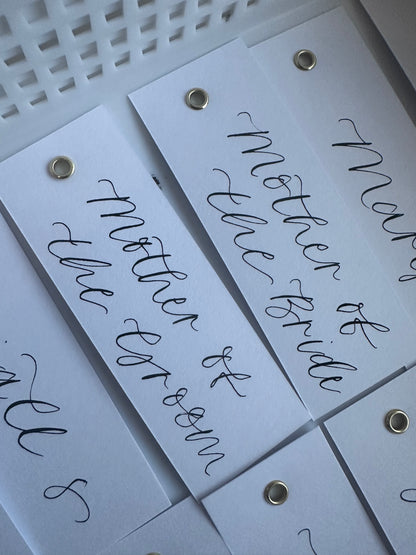 Mother of
the Groom
Mother of
the Bride